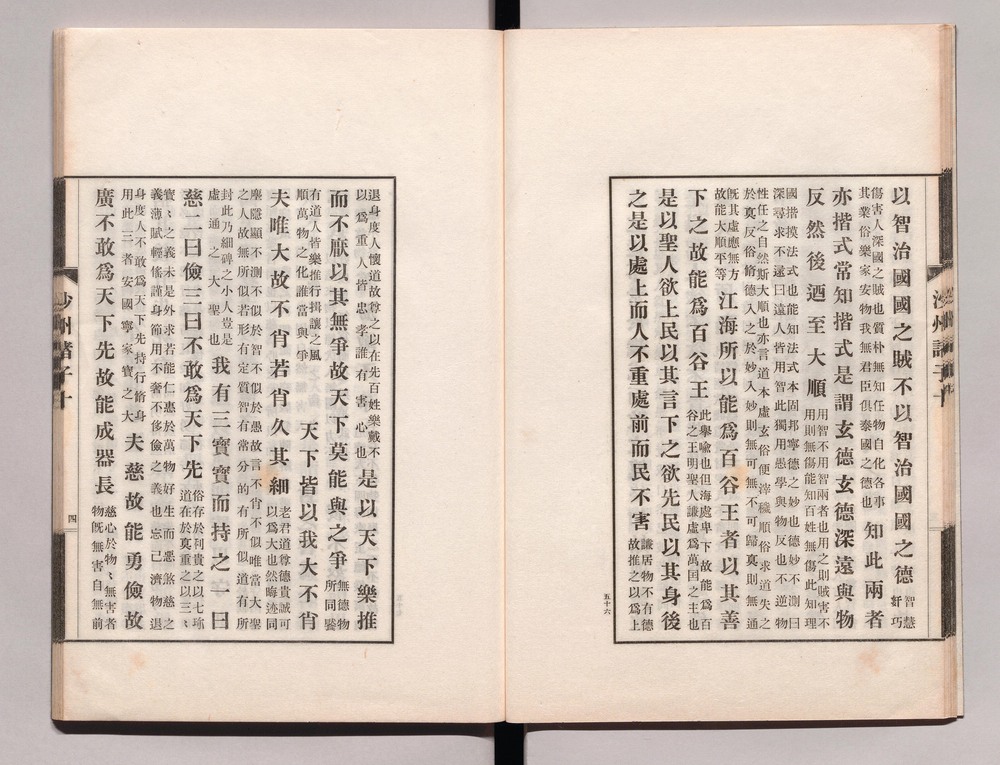 以智治國國之賊不以智治國國之德
智慧
姧巧
傷害人深國之賊也質朴無知任物自化各事
其業俗樂家安物我無君臣俱泰國之德也
知此兩者
亦揩式常知揩式是謂玄德玄德深遠與物
反然後迺至大順
用智不用智兩者也用之則賊害不
用則無傷能知百姓無傷此知理
國揩摸法式也能知法式本固邦寧德之妙也德妙不測曰
深尋求不逮曰遠人皆用智此獨用愚學與物反也不逆物
性任之自然斯大順也亦言道本虛玄俗便滓穢順俗求道失之
於真反俗脩德入之於妙入妙則無可無不可歸真則無通
旣其虛應無方
故能大順平等
江海所以能爲百谷王者以其善
下之故能爲百谷王
此擧喩也但海處卑下故能爲百
谷之王明聖人謙虛爲萬国之主也
是以聖人欲上民以其言下之欲先民以其身後
之是以處上而人不重處前而民不害
謙居物不有德
故推之以爲上
五十六
退身度人懷道故尊之以在先百姓樂戴不
以爲重人皆忠孝誰有害心也
是以天下樂推
而不猒以其無爭故天下莫能與之爭
無德物
所同
有道人皆樂推行揖讓之風
順萬物之化誰當與爭
天下皆以我大不肖
夫唯大故不肖若肖久其細
老君道尊德貴誠可
以爲大也然晦迹同
塵隱顯不測不似於智不似於愚故言不肖不似唯當大聖
之人故無所似若形有定質智有常分的有所似道有所
封此乃細碑之小人豈是
虛通之大聖也
我有三寶寶而持之一曰
慈二曰儉三曰不敢爲天下先
俗存於利貴之以七珎
道在於真重之以三〻
寶〻之義未是外求若能仁惠於萬物好生而惡煞慈之
義薄賦輕傜謹身節用不奢不侈儉之義也忘己濟物退
身度人不敢爲天下先持行脩身
用此三者安國寧家寶之大
夫慈故能勇儉故
廣不敢爲天下先故能成器長
慈心於物〻無害者
物旣無害自無前
沙州諸子十
四